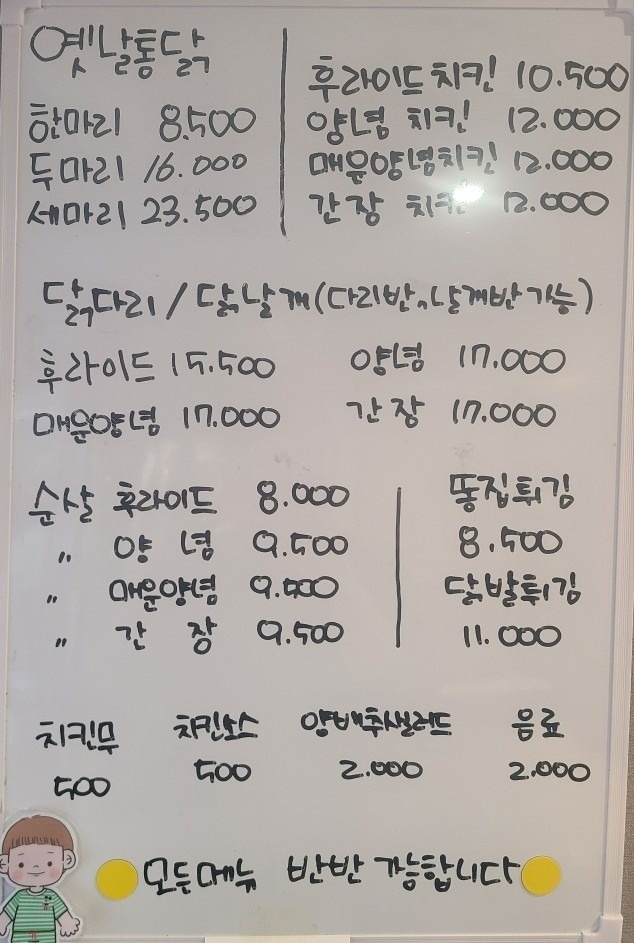 옛날통닭
한마리 8.500
두마리 16.000
세마리 23.500
후라이드치킨 10.500
양념 치킨 12.000
매운양념치킨 12.000
간장 치킨 12.000
닭다리/닭날개(다리반,날개반가능)
후라이드 15.500 양념 17.000
매운양념 17.000 간장 17.000
순살 후라이드 8.000
〃 양념 9.500
〃 매운양념 9.500
〃 간장 9.500
똥집튀김
8.500
닭발튀김
11.000
치킨무 치킨소스 양배추샐러드 음료
500 500 2.000 2.000
모든메뉴 반반 가능합니다